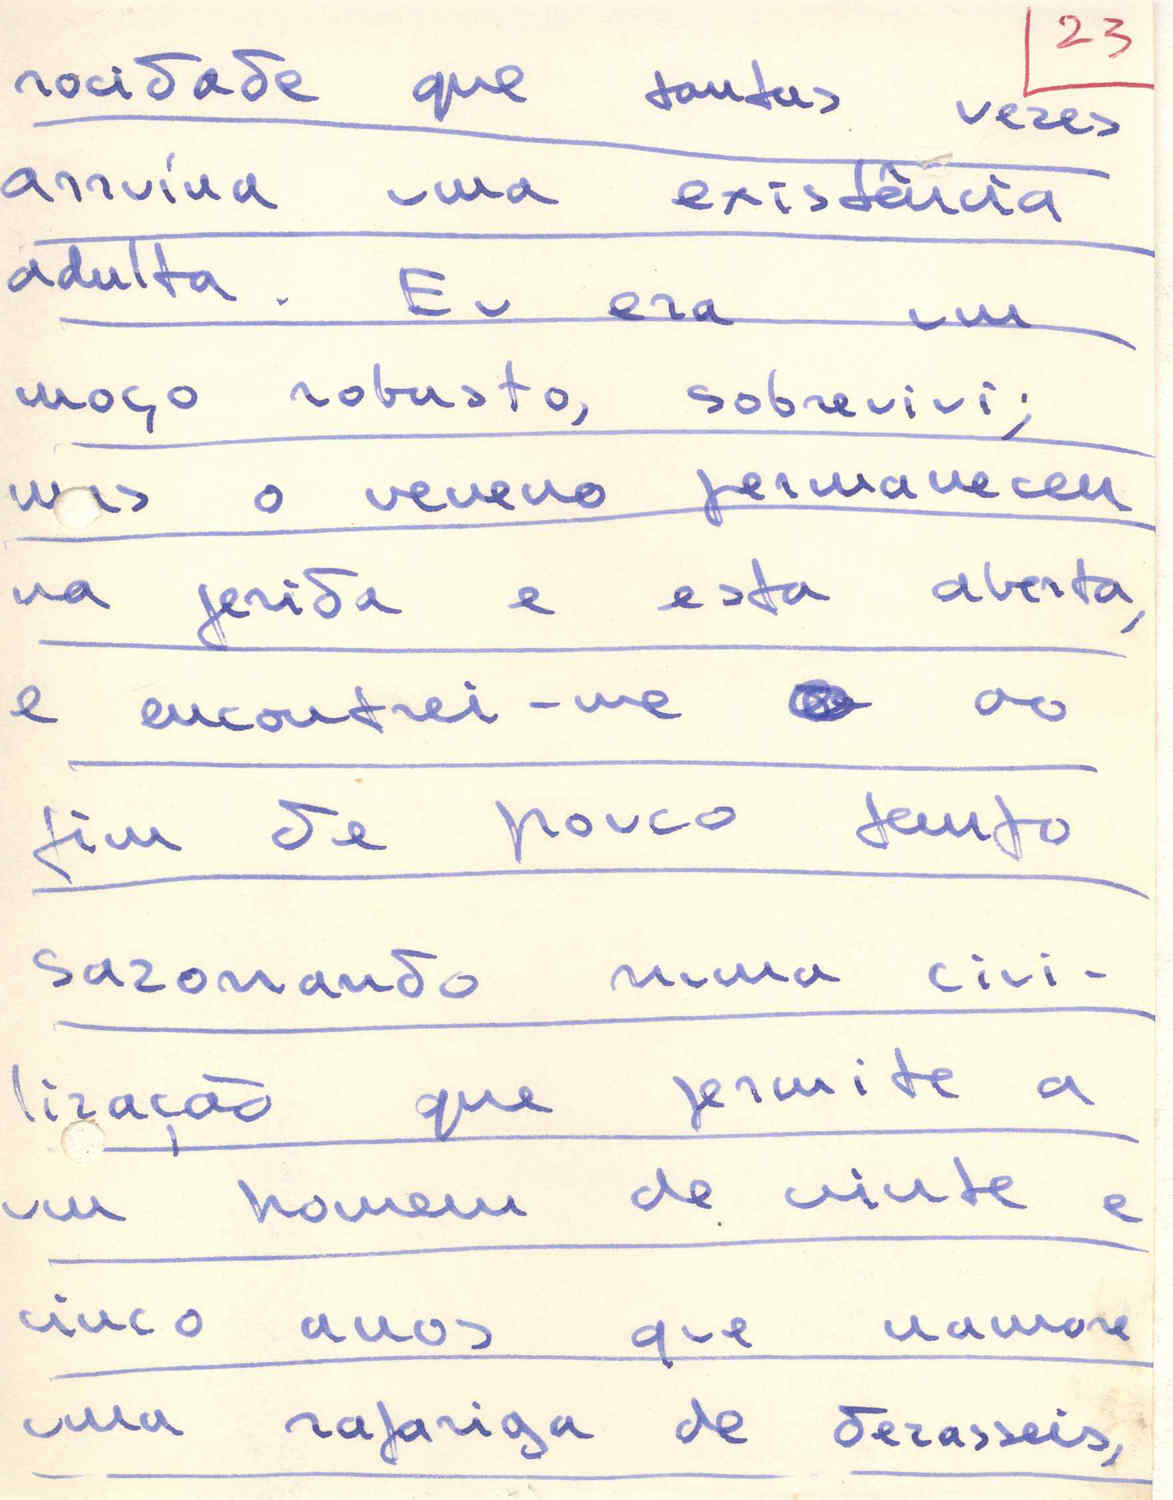 23
rocidade que tantas vezes
arruína uma existência
adulta. Eu era um
moço robusto, sobrevivi;
mas o veneno permaneceu
na ferida e esta aberta,
e encontrei-me ao
fim de pouco tempo
sazonando numa civi-
lização que permite a
um homem de vinte e
cinco anos que namore
uma rapariga de dezasseis,